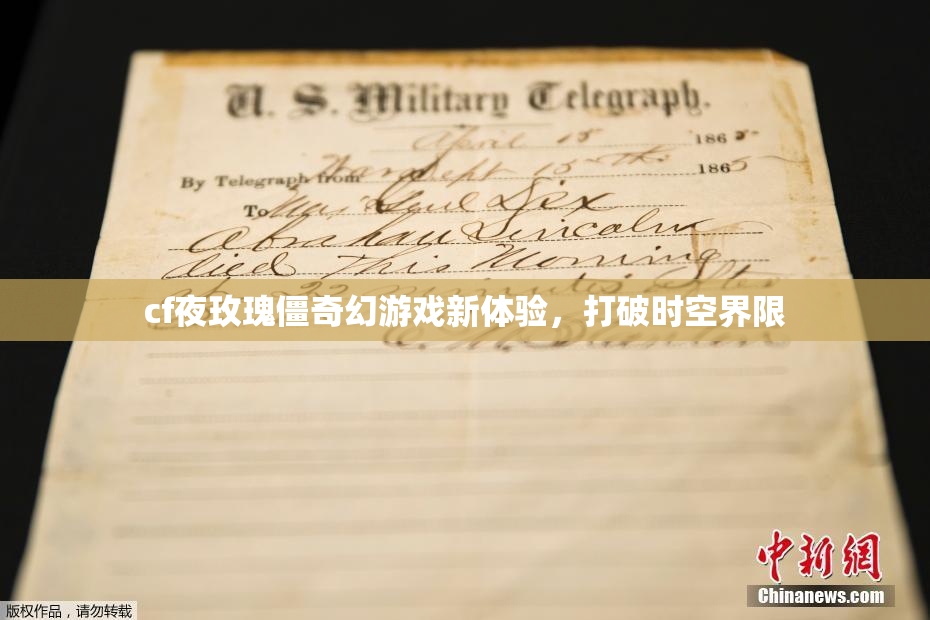 U. S. Military Telegraph.
April 15 1865
By Telegraph from War Dept 15th 1865
To Maj Genl Dix
Abraham Lincoln
died This Morning
22 minutes after
cf夜玫瑰僵奇幻游戏新体验，打破时空界限
E. M. Stanton
中新网
Chinanews.com
版权作品，请勿转载